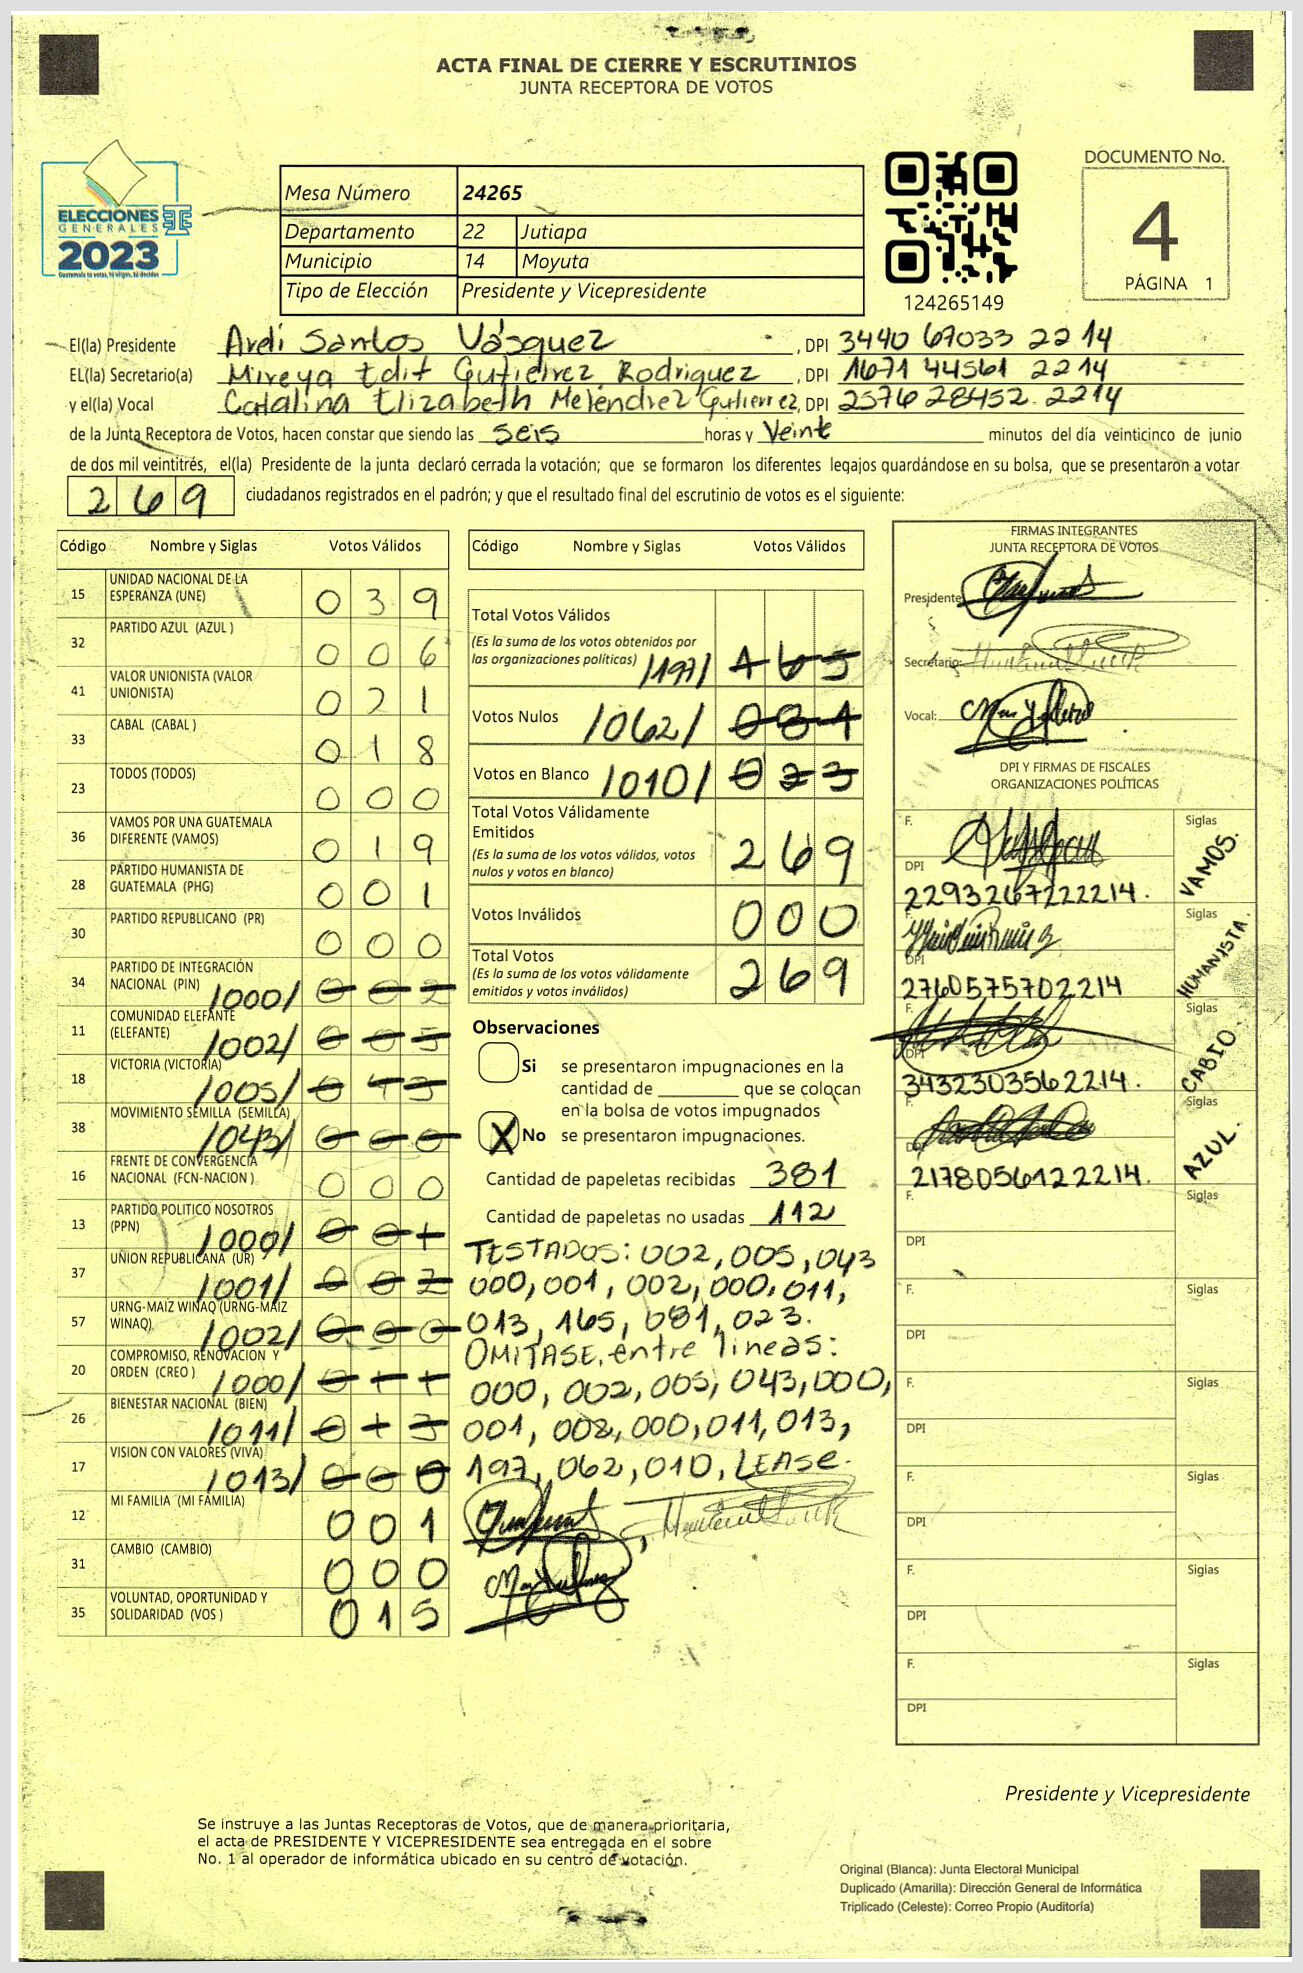 ACTA FINAL DE CIERRE Y ESCRUTINIOS
JUNTA RECEPTORA DE VOTOS
ELECCIONES
GENERALES
2023
Guatemala tú votas, tú eliges, tú decides
Mesa Número 24265
Departamento 22 Jutiapa
Municipio 14 Moyuta
Tipo de Elección Presidente y Vicepresidente
124265149
DOCUMENTO No.
4
PÁGINA 1
El(la) Presidente Ardi Santos Vásquez, DPI 3440 67033 2214
EL(la) Secretario(a) Mireya Edit Gutierrez Rodriguez, DPI 1671 44561 2214
y el(la) Vocal Catalina Elizabeth Meléndrez Gutierrez, DPI 2576 28452 2214
de la Junta Receptora de Votos, hacen constar que siendo las seis horas y Veinte minutos del día veinticinco de junio
de dos mil veintitrés, el(la) Presidente de la junta declaró cerrada la votación; que se formaron los diferentes legajos guardándose en su bolsa, que se presentaron a votar
269 ciudadanos registrados en el padrón; y que el resultado final del escrutinio de votos es el siguiente:
Código Nombre y Siglas Votos Válidos
15 UNIDAD NACIONAL DE LA ESPERANZA (UNE) 039
32 PARTIDO AZUL (AZUL ) 006
41 VALOR UNIONISTA (VALOR UNIONISTA) 021
33 CABAL (CABAL ) 018
23 TODOS (TODOS) 000
36 VAMOS POR UNA GUATEMALA DIFERENTE (VAMOS) 019
28 PARTIDO HUMANISTA DE GUATEMALA (PHG) 001
30 PARTIDO REPUBLICANO (PR) 000
34 PARTIDO DE INTEGRACIÓN NACIONAL (PIN) /000/ 002
11 COMUNIDAD ELEFANTE (ELEFANTE) /002/ 005
18 VICTORIA (VICTORIA) /005/ 043
38 MOVIMIENTO SEMILLA (SEMILLA) /043/ 000
16 FRENTE DE CONVERGENCIA NACIONAL (FCN-NACION ) 000
13 PARTIDO POLITICO NOSOTROS (PPN) /000/ 001
37 UNION REPUBLICANA (UR) /001/ 002
57 URNG-MAIZ WINAQ (URNG-MAIZ WINAQ) /002/ 000
20 COMPROMISO, RENOVACION Y ORDEN (CREO ) /000/ 011
26 BIENESTAR NACIONAL (BIEN) /011/ 013
17 VISION CON VALORES (VIVA) /013/ 000
12 MI FAMILIA (MI FAMILIA) 001
31 CAMBIO (CAMBIO) 000
35 VOLUNTAD, OPORTUNIDAD Y SOLIDARIDAD (VOS ) 015
Código Nombre y Siglas Votos Válidos
Total Votos Válidos
(Es la suma de los votos obtenidos por
las organizaciones políticas) /197/ 165
Votos Nulos /062/ 081
Votos en Blanco /010/ 023
Total Votos Válidamente
Emitidos
(Es la suma de los votos válidos, votos
nulos y votos en blanco) 269
Votos Inválidos 000
Total Votos
(Es la suma de los votos válidamente
emitidos y votos inválidos) 269
Observaciones
Si se presentaron impugnaciones en la
cantidad de ________ que se colocan
en la bolsa de votos impugnados
X No se presentaron impugnaciones.
Cantidad de papeletas recibidas 381
Cantidad de papeletas no usadas 112
TESTADOS: 002, 005, 043
000, 001, 002, 000, 011,
013, 165, 081, 023.
OMITASE, entre lineas:
000, 002, 005, 043, 000,
001, 002, 000, 011, 013,
197, 062, 010, LEASE.
FIRMAS INTEGRANTES
JUNTA RECEPTORA DE VOTOS
Presidente:
Secretario:
Vocal:
DPI Y FIRMAS DE FISCALES
ORGANIZACIONES POLÍTICAS
F. Siglas VAMOS.
DPI 2293267222214.
F. Siglas HUMANISTA.
DPI 2760575702214
F. Siglas CABIO
DPI 3432303562214.
F. Siglas AZUL.
DPI 2178056122214.
F. Siglas
DPI
F. Siglas
DPI
F. Siglas
DPI
F. Siglas
DPI
F. Siglas
DPI
F. Siglas
DPI
Presidente y Vicepresidente
Se instruye a las Juntas Receptoras de Votos, que de manera prioritaria,
el acta de PRESIDENTE Y VICEPRESIDENTE sea entregada en el sobre
No. 1 al operador de informática ubicado en su centro de votación.
Original (Blanca): Junta Electoral Municipal
Duplicado (Amarilla): Dirección General de Informática
Triplicado (Celeste): Correo Propio (Auditoría)